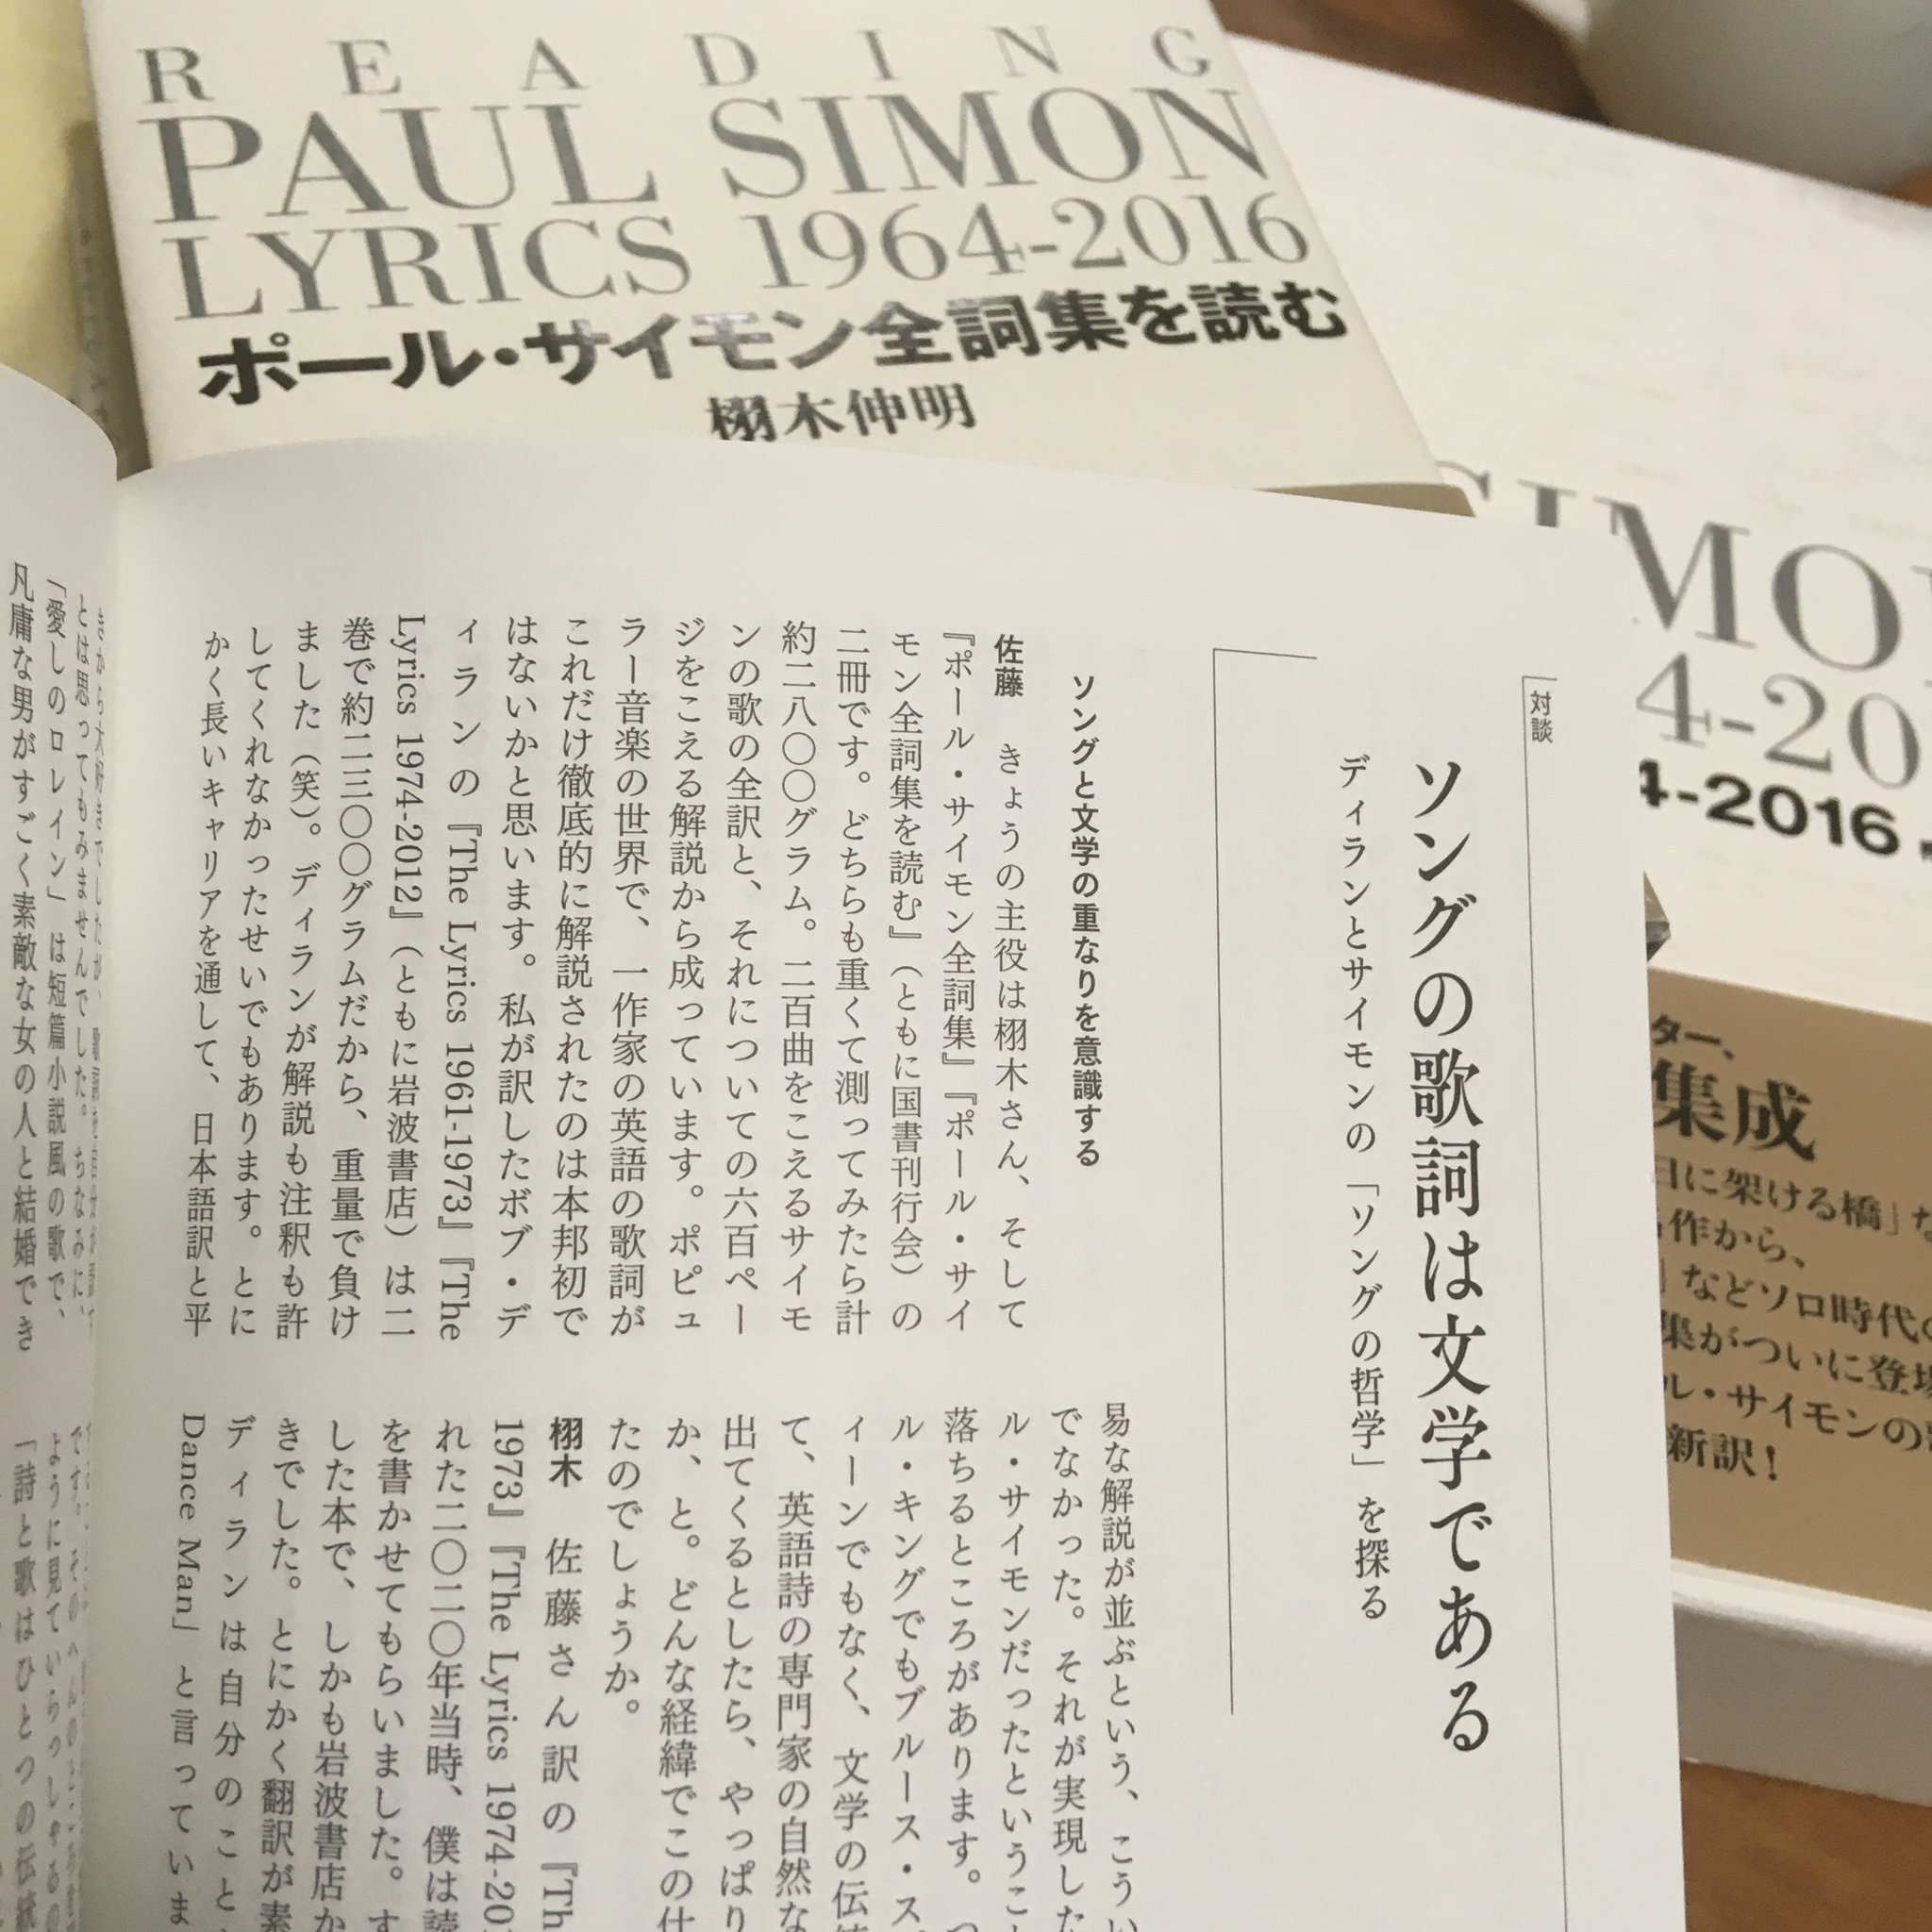 READING
PAUL SIMON
LYRICS 1964-2016
ポール・サイモン全詞集を読む
栩木伸明
SIMO
4-20
4-2016
ター、
集成
目に架ける橋」な
作から、
」などソロ時代の
集がついに登場
ル・サイモンの
新訳!
対談
ソングの歌詞は文学である
ディランとサイモンの「ソングの哲学」を探る
ソングと文学の重なりを意識する
佐藤　きょうの主役は栩木さん、そして
『ポール・サイモン全詞集』『ポール・サイ
モン全詞集を読む』(ともに国書刊行会)の
二冊です。どちらも重くて測ってみたら計
約二八〇〇グラム。二百曲をこえるサイモ
ンの歌の全訳と、それについての六百ペー
ジをこえる解説から成っています。ポピュ
ラー音楽の世界で、一作家の英語の歌詞が
これだけ徹底的に解説されたのは本邦初で
はないかと思います。私が訳したボブ・デ
ィランの『The Lyrics 1961-1973』『The
Lyrics 1974-2012』(ともに岩波書店)は二
巻で約二三〇〇グラムだから、重量で負け
ました(笑)。ディランが解説も注釈も許
してくれなかったせいでもあります。とに
かく長いキャリアを通して、日本語訳と平
易な解説が並ぶという、こうい
でなかった。それが実現した
ル・サイモンだったというこ
落ちるところがあります。
ル・キングでもブルース・ス
ィーンでもなく、文学の伝統
て、英語詩の専門家の自然な
出てくるとしたら、やっぱり
か、と。どんな経緯でこの仕
たのでしょうか。
栩木　佐藤さん訳の『Th
1973』『The Lyrics 1974-20
れた二〇二〇年当時、僕は読
を書かせてもらいました。す
した本で、しかも岩波書店か
きでした。とにかく翻訳が素
ディランは自分のこと
Dance Man」と言っていま
とは思ってもみませんでした。ちなみに、
「愛しのロレイン」は短篇小説風の歌で、
凡庸な男がすごく素敵な女の人と結婚でき
ように見ていらっしゃるの
「詩と歌はひとつの伝統